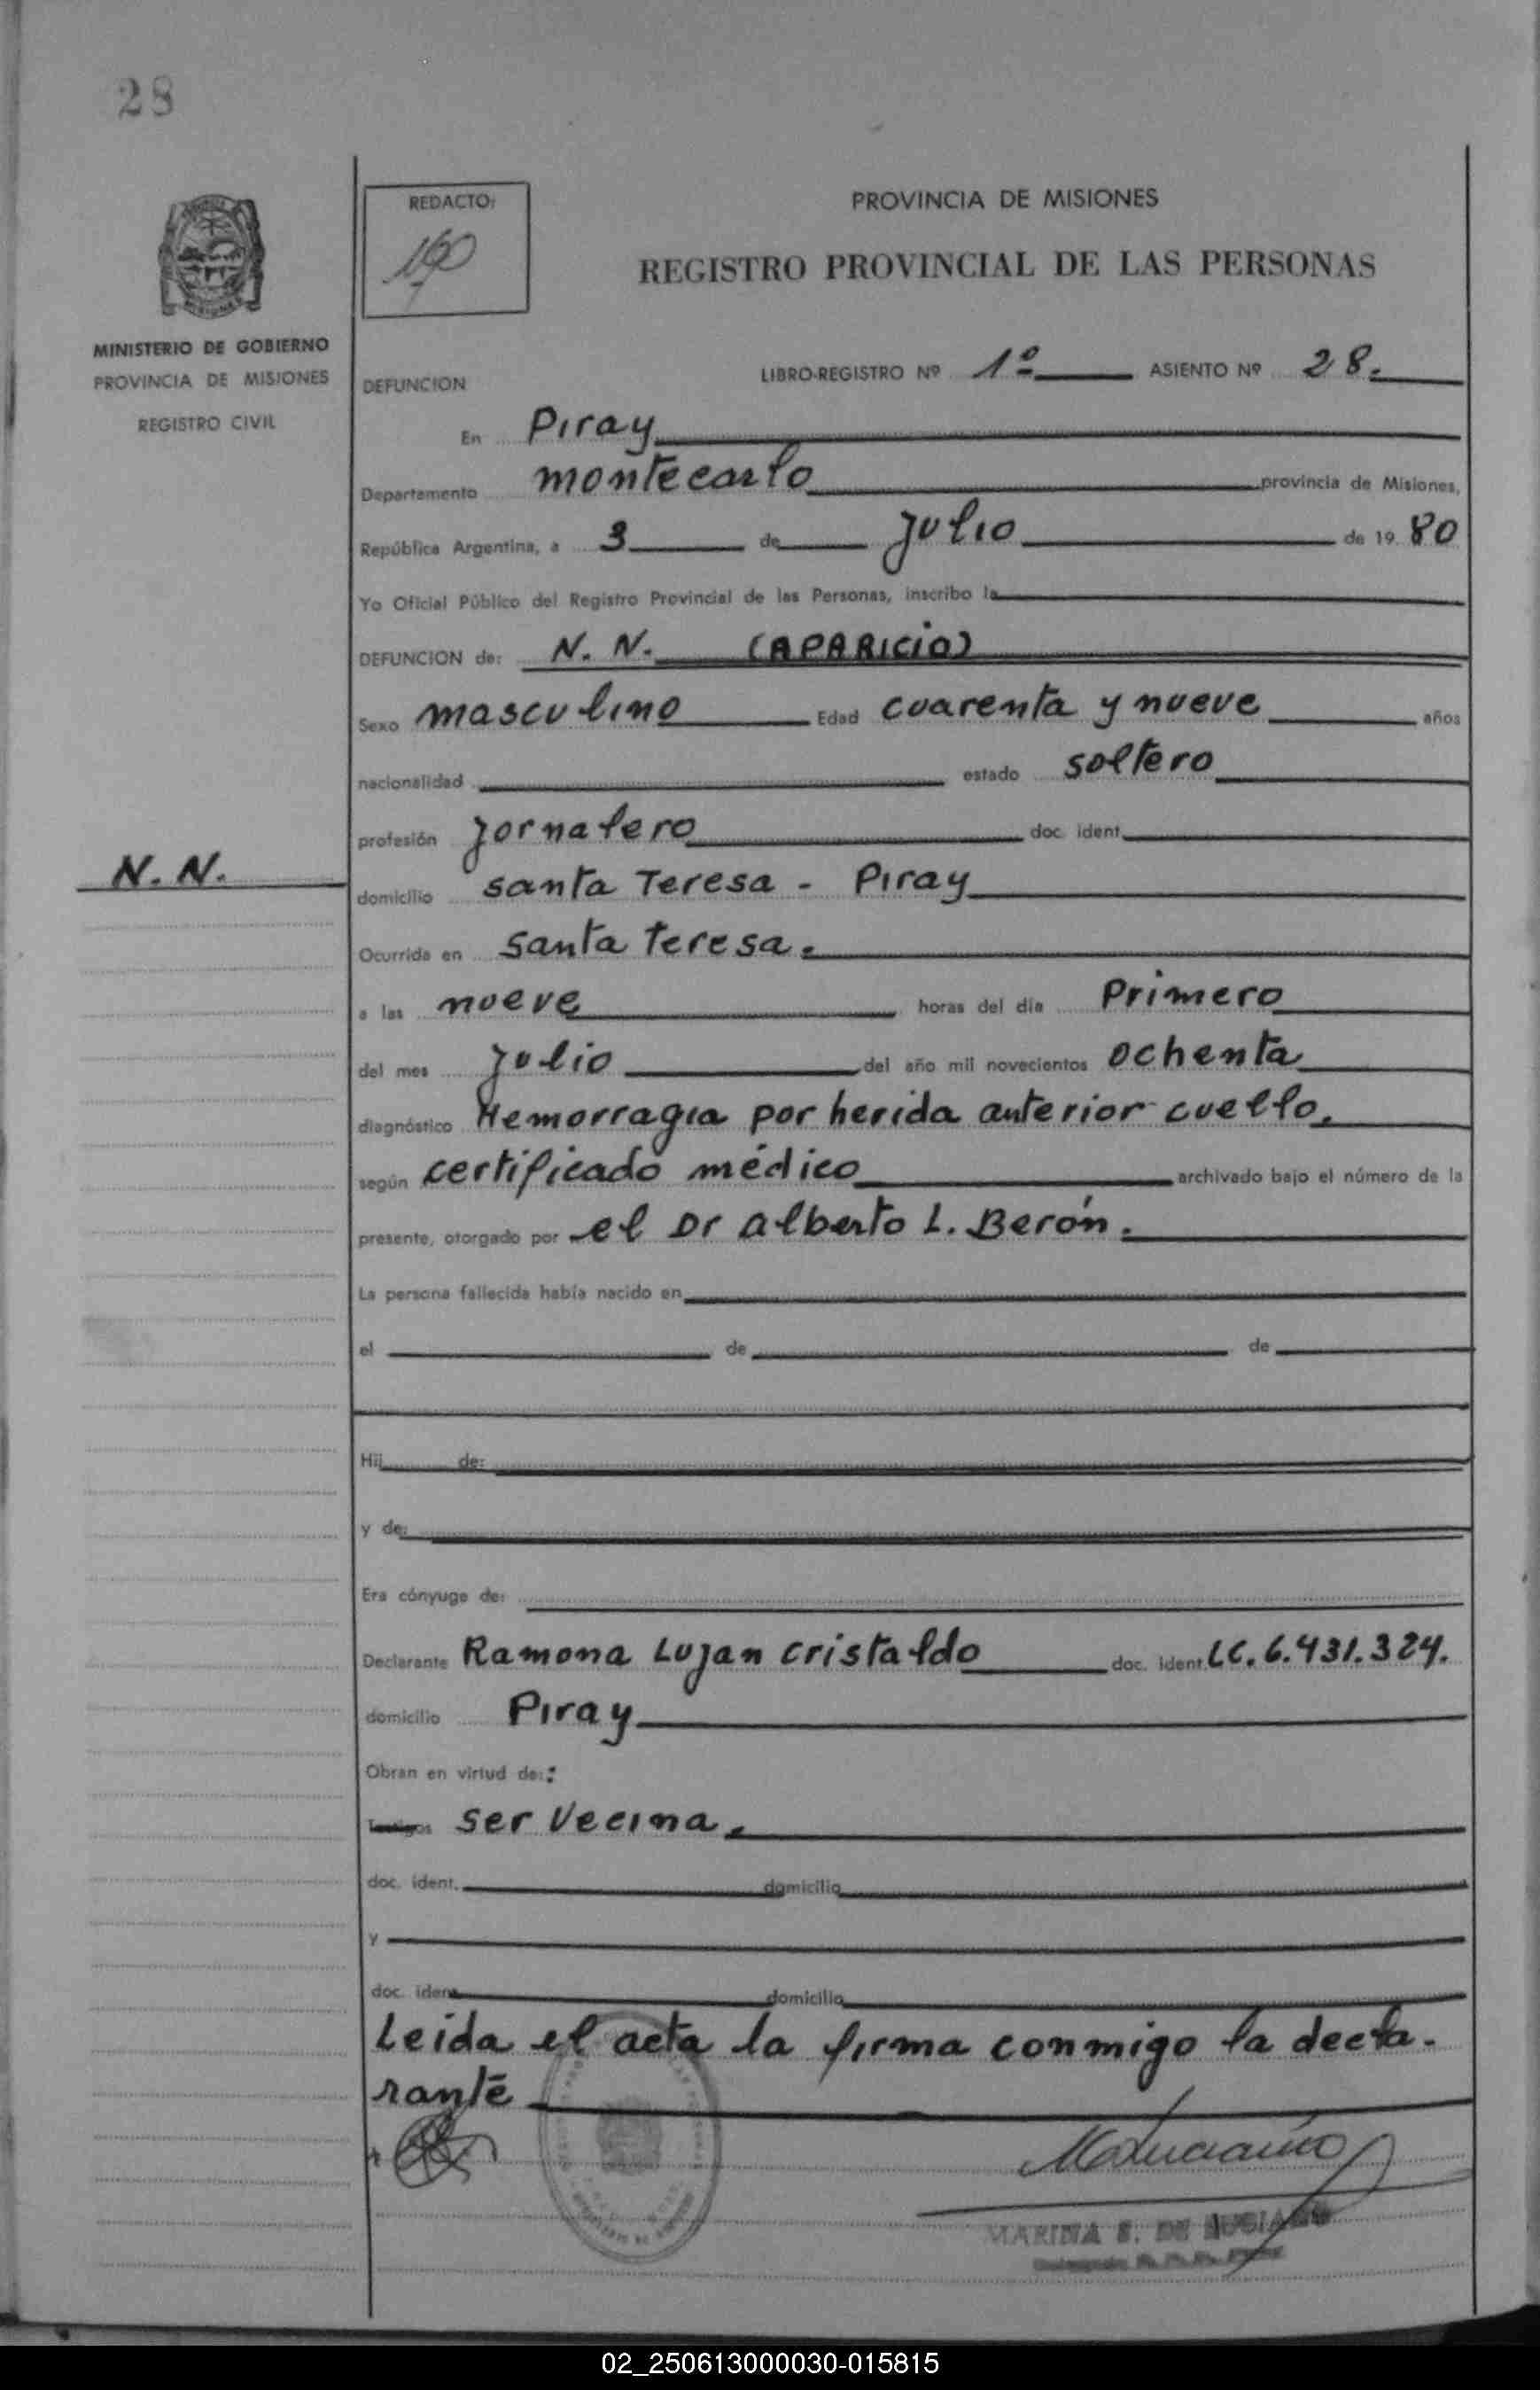 28
REDACTO:
PROVINCIA DE MISIONES
REGISTRO PROVINCIAL DE LAS PERSONAS
MINISTERIO DE GOBIERNO
PROVINCIA DE MISIONES
REGISTRO CIVIL
DEFUNCION LIBRO-REGISTRO Nº 1º ASIENTO Nº 28.
En Piray
Departamento montecarlo provincia de Misiones,
República Argentina, a 3 de Julio de 19 80
Yo Oficial Público del Registro Provincial de las Personas, inscribo la
DEFUNCION de: N. N. (APARICIO)
Sexo masculino Edad cuarenta y nueve años
nacionalidad estado soltero
profesión Jornalero doc. ident.
N. N.
domicilio santa Teresa - Piray
Ocurrida en santa teresa.
a las nueve horas del día Primero
del mes Julio del año mil novecientos ochenta
diagnóstico Hemorragia por herida anterior cuello.
según certificado médico archivado bajo el número de la
presente, otorgado por el Dr Alberto L. Berón.
La persona fallecida había nacido en
el de de
Hij de:
y de:
Era cónyuge de:
Declarante Ramona Lujan cristaldo doc. ident. LC. 6.431.324.
domicilio Piray
Obran en virtud de::
Testigos ser vecina.
doc. ident. domicilio
y
doc. ident. domicilio
Leida el acta la firma conmigo la decla-
rante
MARINA E. DE
02_250613000030-015815